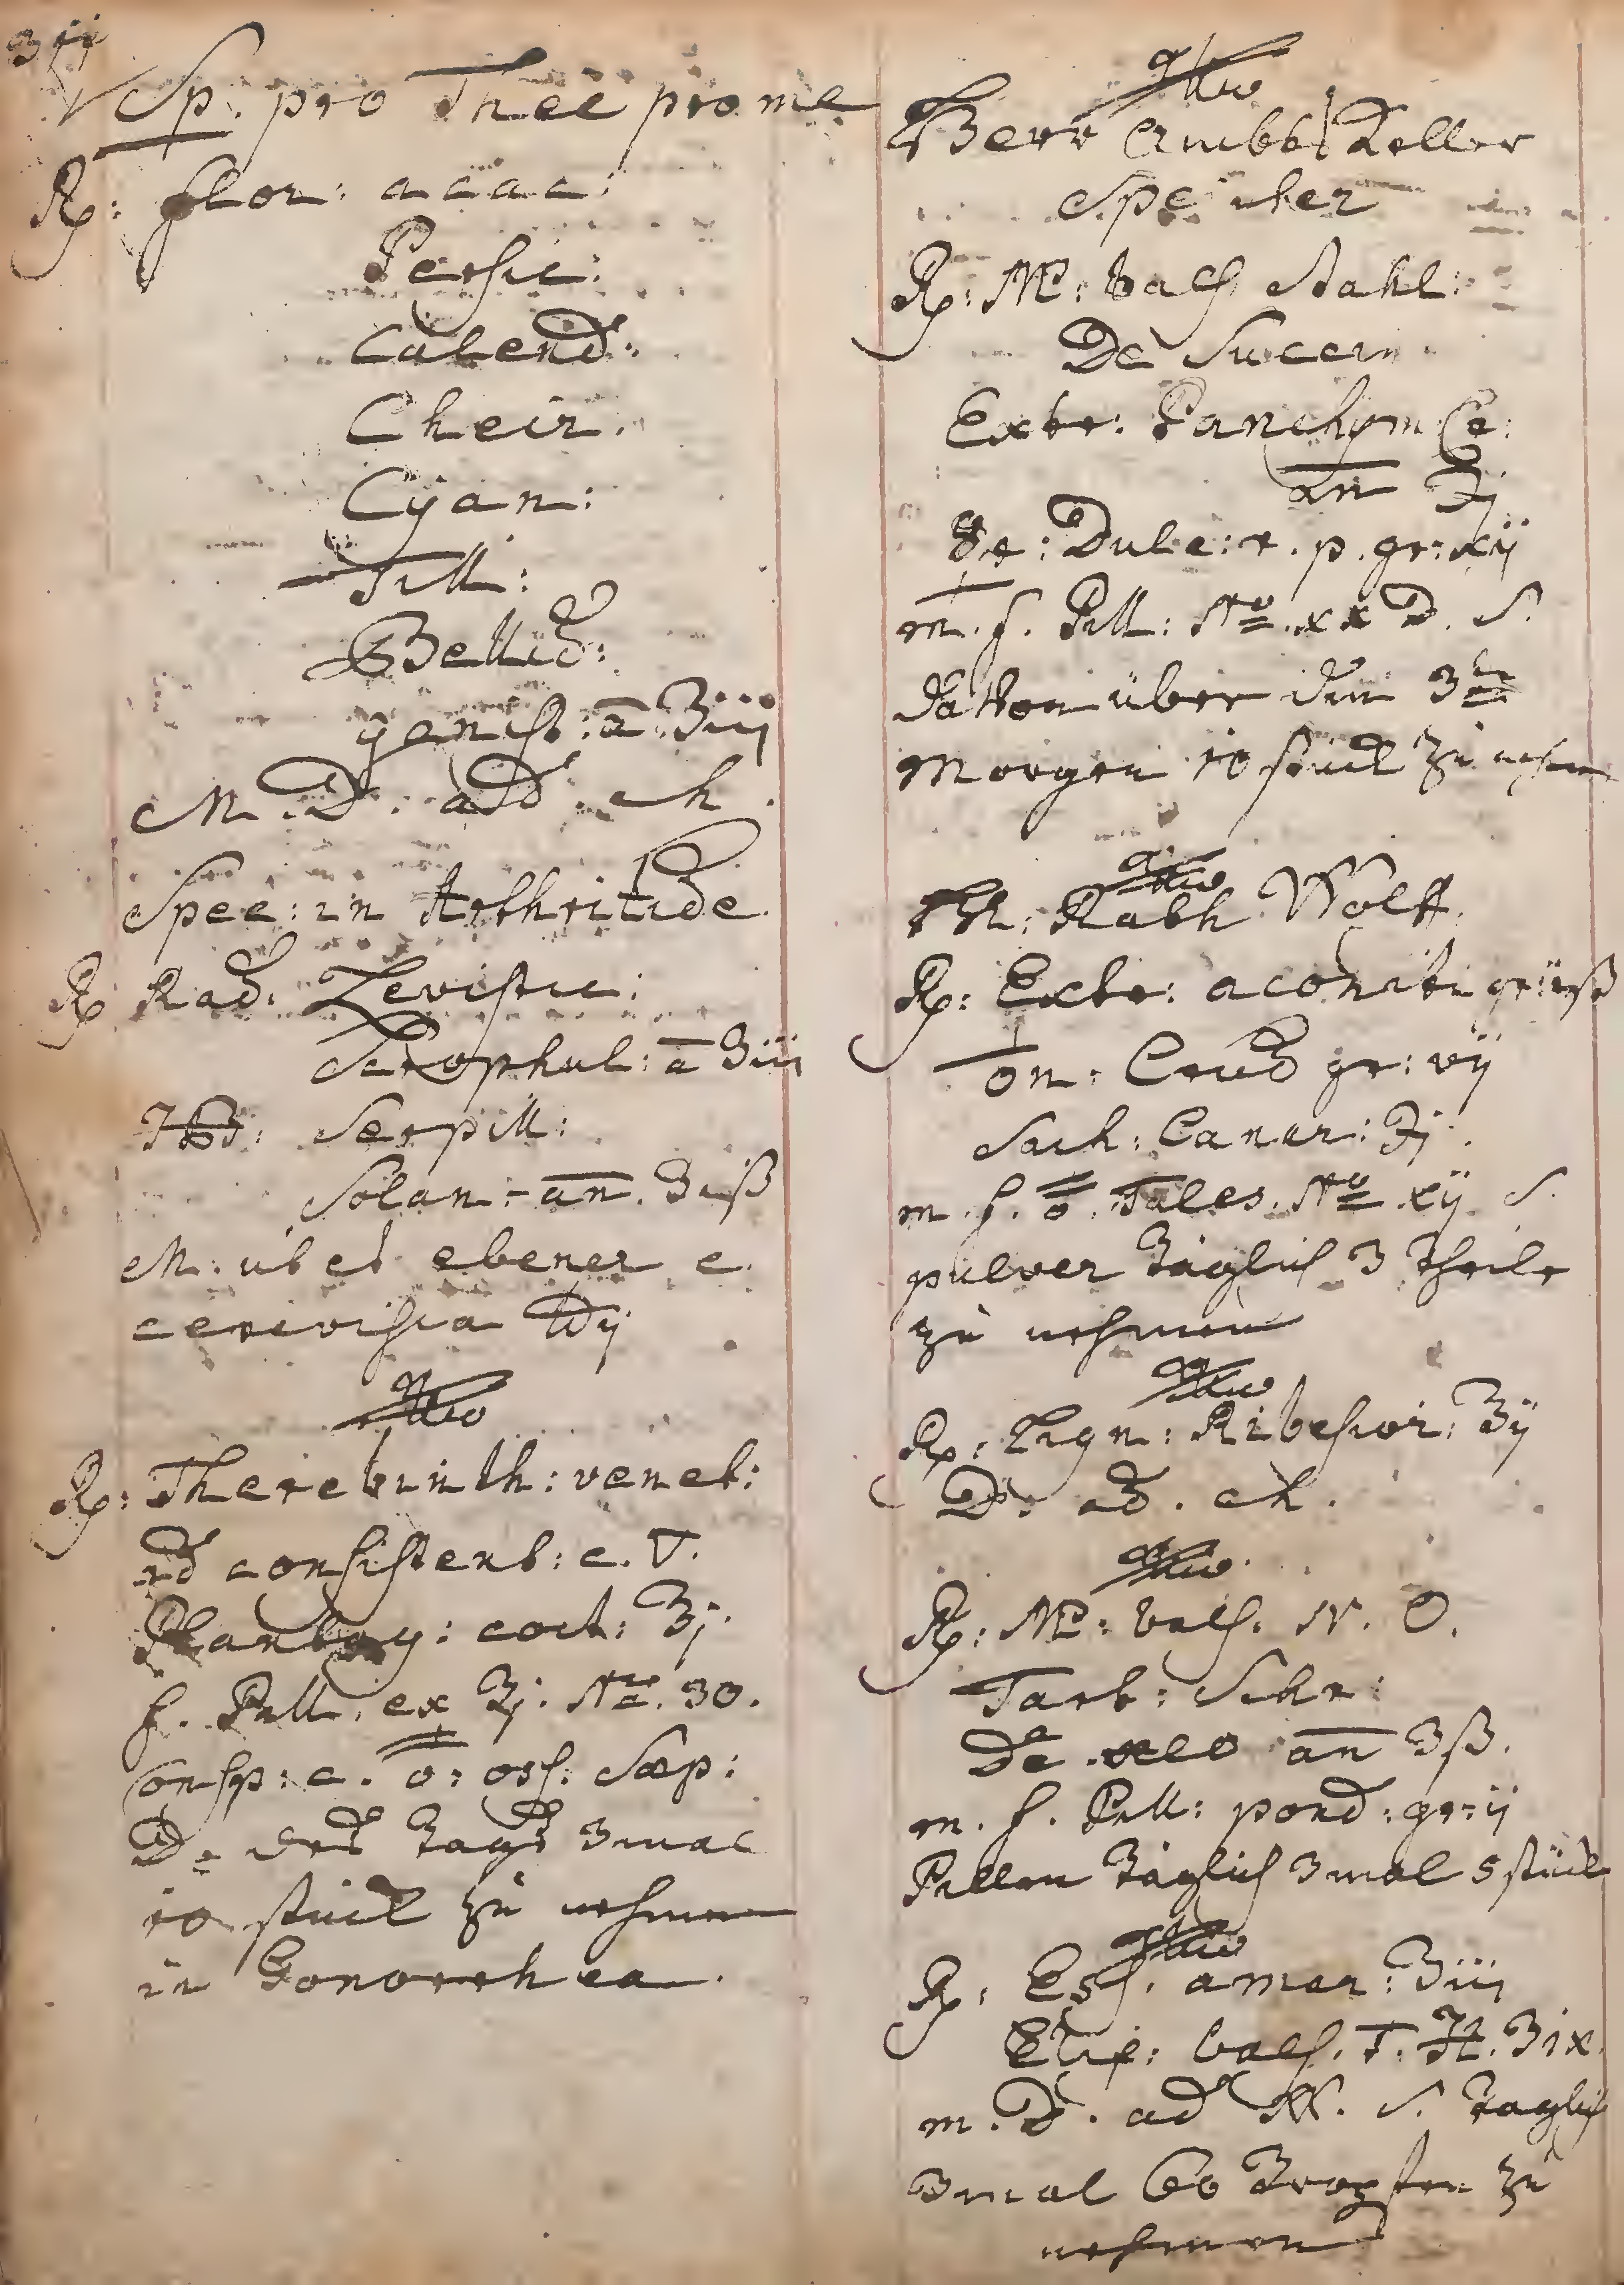 Sp. pro Thee pro me
℞: flor: acac:
Persic:
Calend:
Cheir.
Cÿan:
Till:
Bellid:
genist: a̅ ʒiij
M. D. ad ch.
Spec: in Arthritide
℞ Rad: Levistic:
Scrophul: a̅ ʒiij
Hb: Serpill:
Solan: an̅. ʒiß
M. ebener c.
cerevisia ℔ij
℞: Therebinth: venet:
ad consistent: c. ▽.
Plantag: coct: ʒj.
f. Pill. ex ʒj. No. 30.
Consp: c. oss. Sæp:
D. des tags 3 mal
10 stück zu nehmen
in Gonorrhea.
Herr Ambts Keller
Speicher
℞: MP: bals Stahl:
De Succin
Extr: Panchym Cr:
an̅ ℈j
☿ Dulc: r. p. gr: xij
m. f. Pill: No. xx D. S.
davon über den 3ten
Morgen 10 stück zu nehmen
H: Rath Wolff.
℞: Extr: aconiti
Crud gr: vij
Sach: Canar: ℈j.
m. f. Tales. No. xij. S.
pulver täglich 3 theile
zu nehmen
℞: Lign: Ribesior: ʒij
D. ad. ch.
℞: MP: bals. N. O.
Tart: Schr:
De aleo an̅ ʒß.
m. f. Pill: pond: gr: ij
Pillen täglich 3 mal 5 stück
℞: Ess. amar: ʒiij
Elix: bals. T. H. ʒix.
m. D. ad S. täglich
3 mal 60 Tropfen zu
nehmen